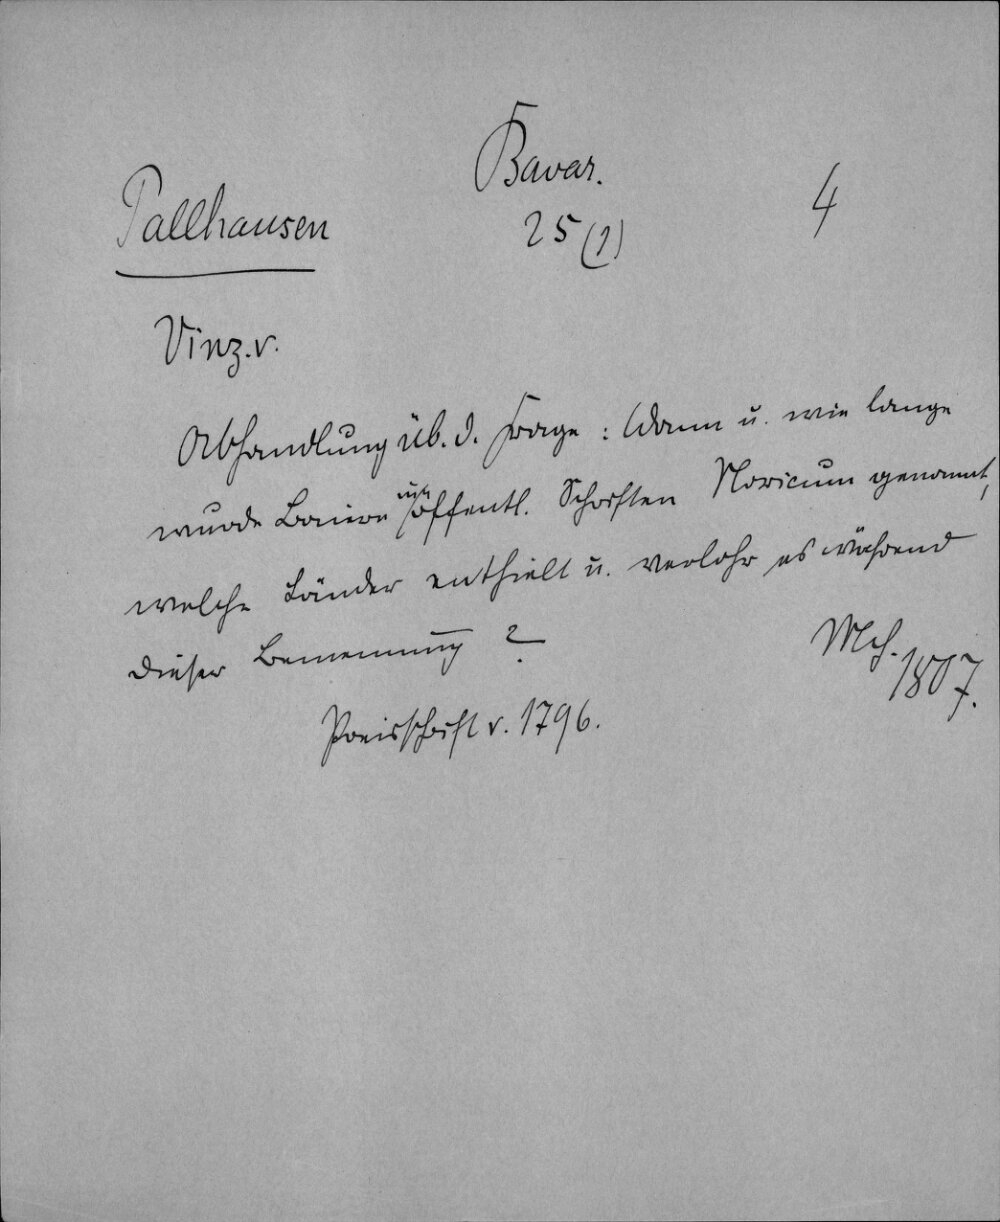 Bavar.
4
Pallhausen
25 (1)
Vinz. v.
Abhandlung üb. d. Frage: Wann u. wie lange
wurde Baiern in öffentl. Schriften Noricum genannt,
welche Länder enthielt u. verlohr es während
dieser Benennung?
Mch.
1807.
Preisschrift v. 1796.